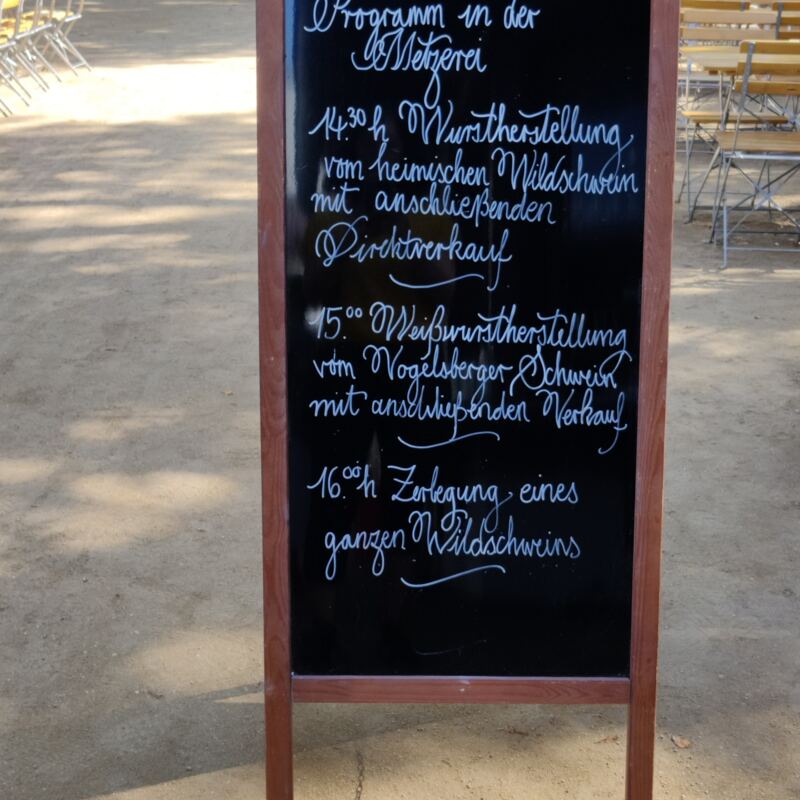 Programm in der
Metzerei
14.30 h Wurstherstellung
vom heimischen Wildschwein
mit anschließenden
Direktverkauf
15.00 Weißwurstherstellung
vom Vogelsberger Schwein
mit anschließenden Verkauf
16.00 h Zerlegung eines
ganzen Wildschweins